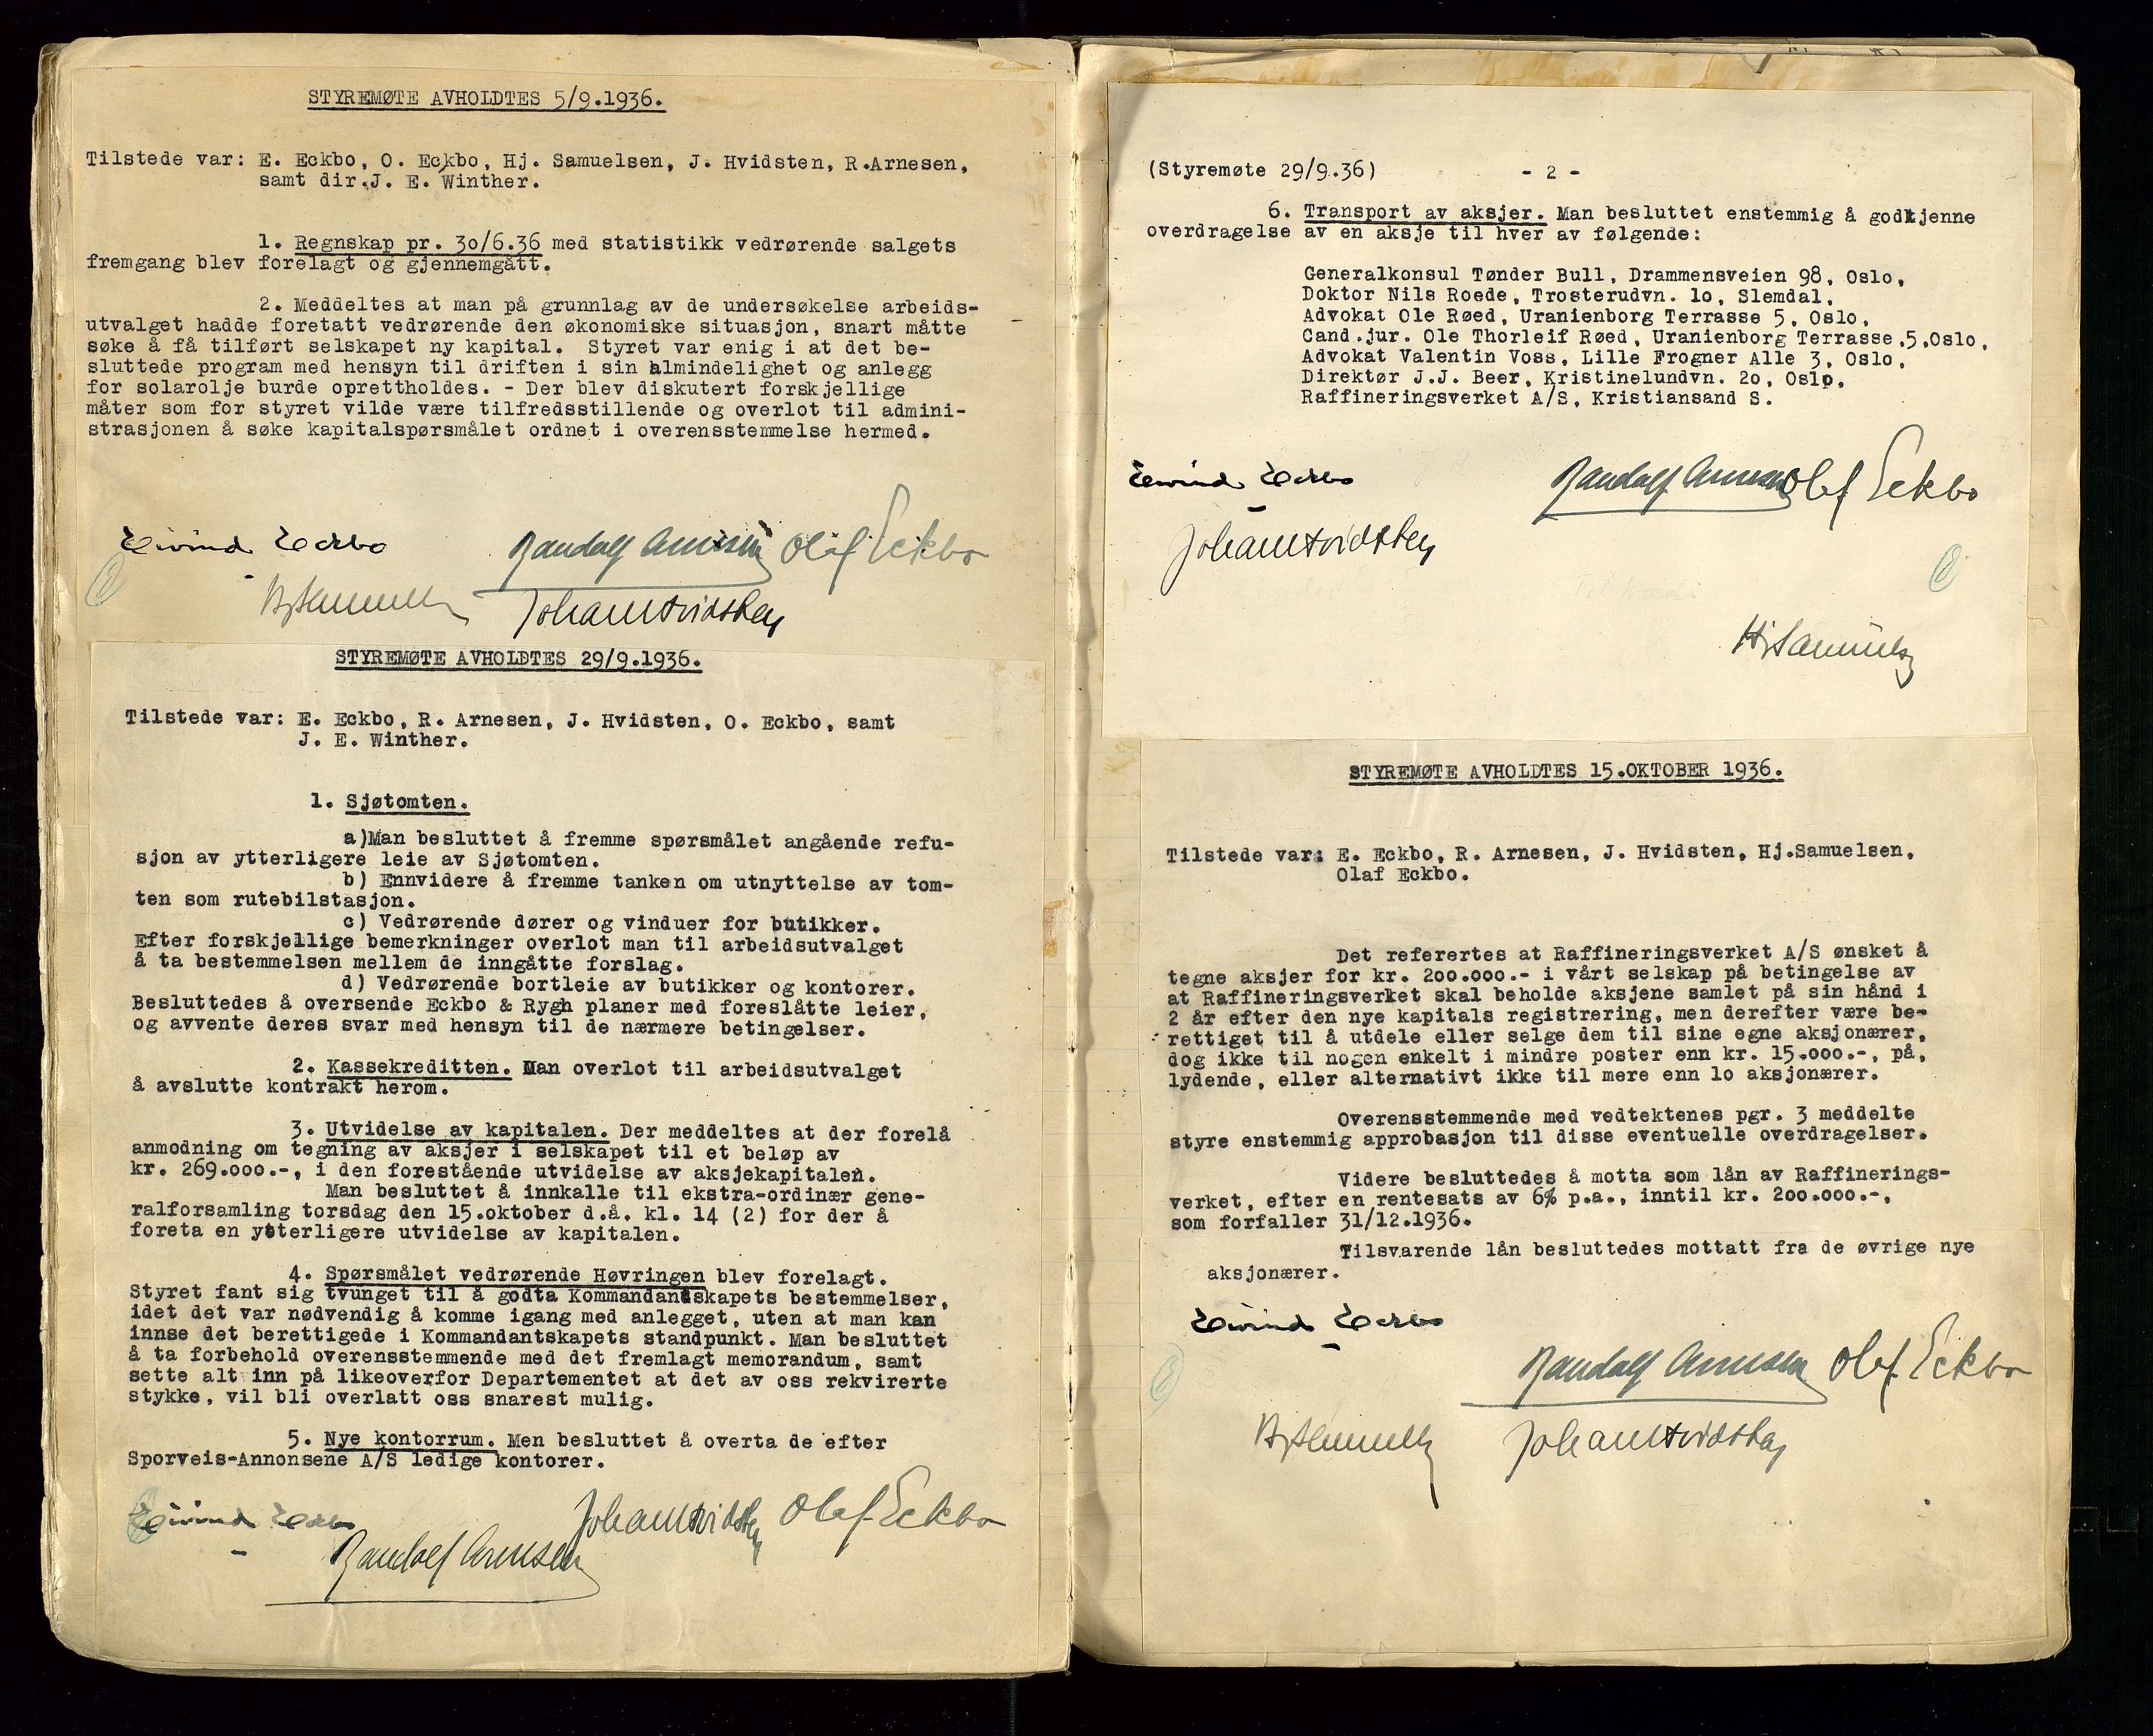 STYREMØTE AVHOLDTES 5/9.1936.
Tilstede var: E. Eckbo, O. Eckbo, Hj. Samuelsen, J. Hvidsten, R.Arnesen,
samt dir.J. E. Winther.
1. Regnskap pr. 30/6.36 med statistikk vedrørende salgets
fremgang blev forelagt og gjennemgått.
2. Meddeltes at man på grunnlag av de undersøkelse arbeids-
utvalget hadde foretatt vedrørende den økonomiske situasjon, snart måtte
søke å få tilført selskapet ny kapital. Styret var enig i at det be-
sluttede program med hensyn til driften i sin almindelighet og anlegg
for solarolje burde oprettholdes. - Der blev diskutert forskjellige
måter som for styret vilde være tilfredsstillende og overlot til admini-
strasjonen å søke kapitalspørsmålet ordnet i overensstemmelse hermed.
Eivind Eckbo Randolf Arnesen Olaf Eckbo
HjSamuelsen Johan Hvidsten
STYREMØTE AVHOLDTES 29/9.1936.
Tilstede var: E. Eckbo, R. Arnesen, J. Hvidsten, O. Eckbo, samt
J. E. Winther.
1. Sjøtomten.
a)Man besluttet å fremme spørsmålet angående refu-
sjon av ytterligere leie av Sjøtomten.
b) Ennvidere å fremme tanken om utnyttelse av tom-
ten som rutebilstasjon.
c) Vedrørende dører og vinduer for butikker.
Efter forskjellige bemerkninger overlot man til arbeidsutvalget
å ta bestemmelsen mellem de inngåtte forslag.
d) Vedrørende bortleie av butikker og kontorer.
Besluttedes å oversende Eckbo & Rygh planer med foreslåtte leier,
og avvente deres svar med hensyn til de nærmere betingelser.
2. Kassekreditten. Man overlot til arbeidsutvalget
å avslutte kontrakt herom.
3. Utvidelse av kapitalen. Der meddeltes at der forelå
anmodning om tegning av aksjer i selskapet til et beløp av
kr. 269.000.-, i den forestående utvidelse av aksjekapitalen.
Man besluttet å innkalle til ekstra-ordinær gene-
ralforsamling torsdag den 15.oktober d.å. kl. 14 (2) for der å
foreta en ytterligere utvidelse av kapitalen.
4. Spørsmålet vedrørende Høvringen blev forelagt.
Styret fant sig tvunget til å godta Kommandantskapets bestemmelser,
idet det var nødvendig å komme igang med anlegget, uten at man kan
innse det berettigede i Kommandantskapets standpunkt. Man besluttet
å ta forbehold overensstemmende med det fremlagt memorandum, samt
sette alt inn på likeoverfor Departementet at det av oss rekvirerte
stykke, vil bli overlatt oss snarest mulig.
5. Nye kontorrum. Men besluttet å overta de efter
Sporveis-Annonsene A/S ledige kontorer.
Eivind Eckbo Johan Hvidsten Olaf Eckbo
Randolf Arnesen
(Styremøte 29/9.36) - 2 -
6. Transport av aksjer. Man besluttet enstemmig å godkjenne
overdragelse av en aksje til hver av følgende:
Generalkonsul Tønder Bull, Drammensveien 98, Oslo,
Doktor Nils Roede, Trosterudvn. lo, Slemdal,
Advokat Ole Røed, Uranienborg Terrasse 5, Oslo,
Cand.jur. Ole Thorleif Røed, Uranienborg Terrasse.5.Oslo,
Advokat Valentin Voss, Lille Frogner Alle 3, Oslo,
Direktør J.J. Beer, Kristinelundvn. 2o, Oslo,
Raffineringsverket A/S, Kristiansand S.
Eivind Eckbo Randolf Arnesen Olaf Eckbo
Johan Hvidsten
HjSamuelsen
STYREMØTE AVHOLDTES 15.OKTOBER 1936.
Tilstede var: E. Eckbo, R. Arnesen, J. Hvidsten, Hj.Samuelsen,
Olaf Eckbo.
Det referertes at Raffineringsverket A/S ønsket å
tegne aksjer for kr. 200.000.- i vårt selskap på betingelse av
at Raffineringsverket skal beholde aksjene samlet på sin hånd i
2 år efter den nye kapitals registrering, men derefter være be-
rettiget til å utdele eller selge dem til sine egne aksjonærer,
dog ikke til nogen enkelt i mindre poster enn kr. 15.000.-, på,
lydende, eller alternativt ikke til mere enn lo aksjonærer.
Overensstemmende med vedtektenes pgr. 3 meddelte
styre enstemmig approbasjon til disse eventuelle overdragelser.
Videre besluttedes å motta som lån av Raffinerings-
verket, efter en rentesats av 6% p.a., inntil kr. 200.000.-,
som forfaller 31/12.1936.
Tilsvarende lån besluttedes mottatt fra de øvrige nye
aksjonærer.
Eivind Eckbo
Randolf Arnesen Olaf Eckbo
HjSamuelsen Johan Hvidsten